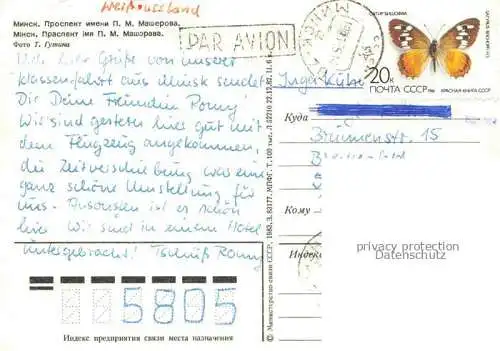 Weißrussland
Минск. Проспект имени П. М. Машерова.
Мінск. Праспект імя П. М. Машэрава.
Фото Т. Гутина
PAR AVION
МИНСК
20к
ПОЧТА СССР
КРАСНАЯ КНИГА СССР
Viele Grüße von unserer
Klassenfahrt aus Minsk sendet
Dir Deine Freundin Romy!
Wir sind gestern hier gut mit
dem Flugzeug angekommen,
die Zeitverschiebung war eine
ganz schöne Umstellung für
uns. Ansonsten ist es schön
hier. Wir sind in einem Hotel
untergebracht! Tschüß Romy
© Министерство связи СССР, 1983. З. 83177. МПФГ. Т. 100 тыс.
Куда
Blumenstr. 15
Кому
Индекс
privacy protection
watermark
5805
Индекс предприятия связи места назначения